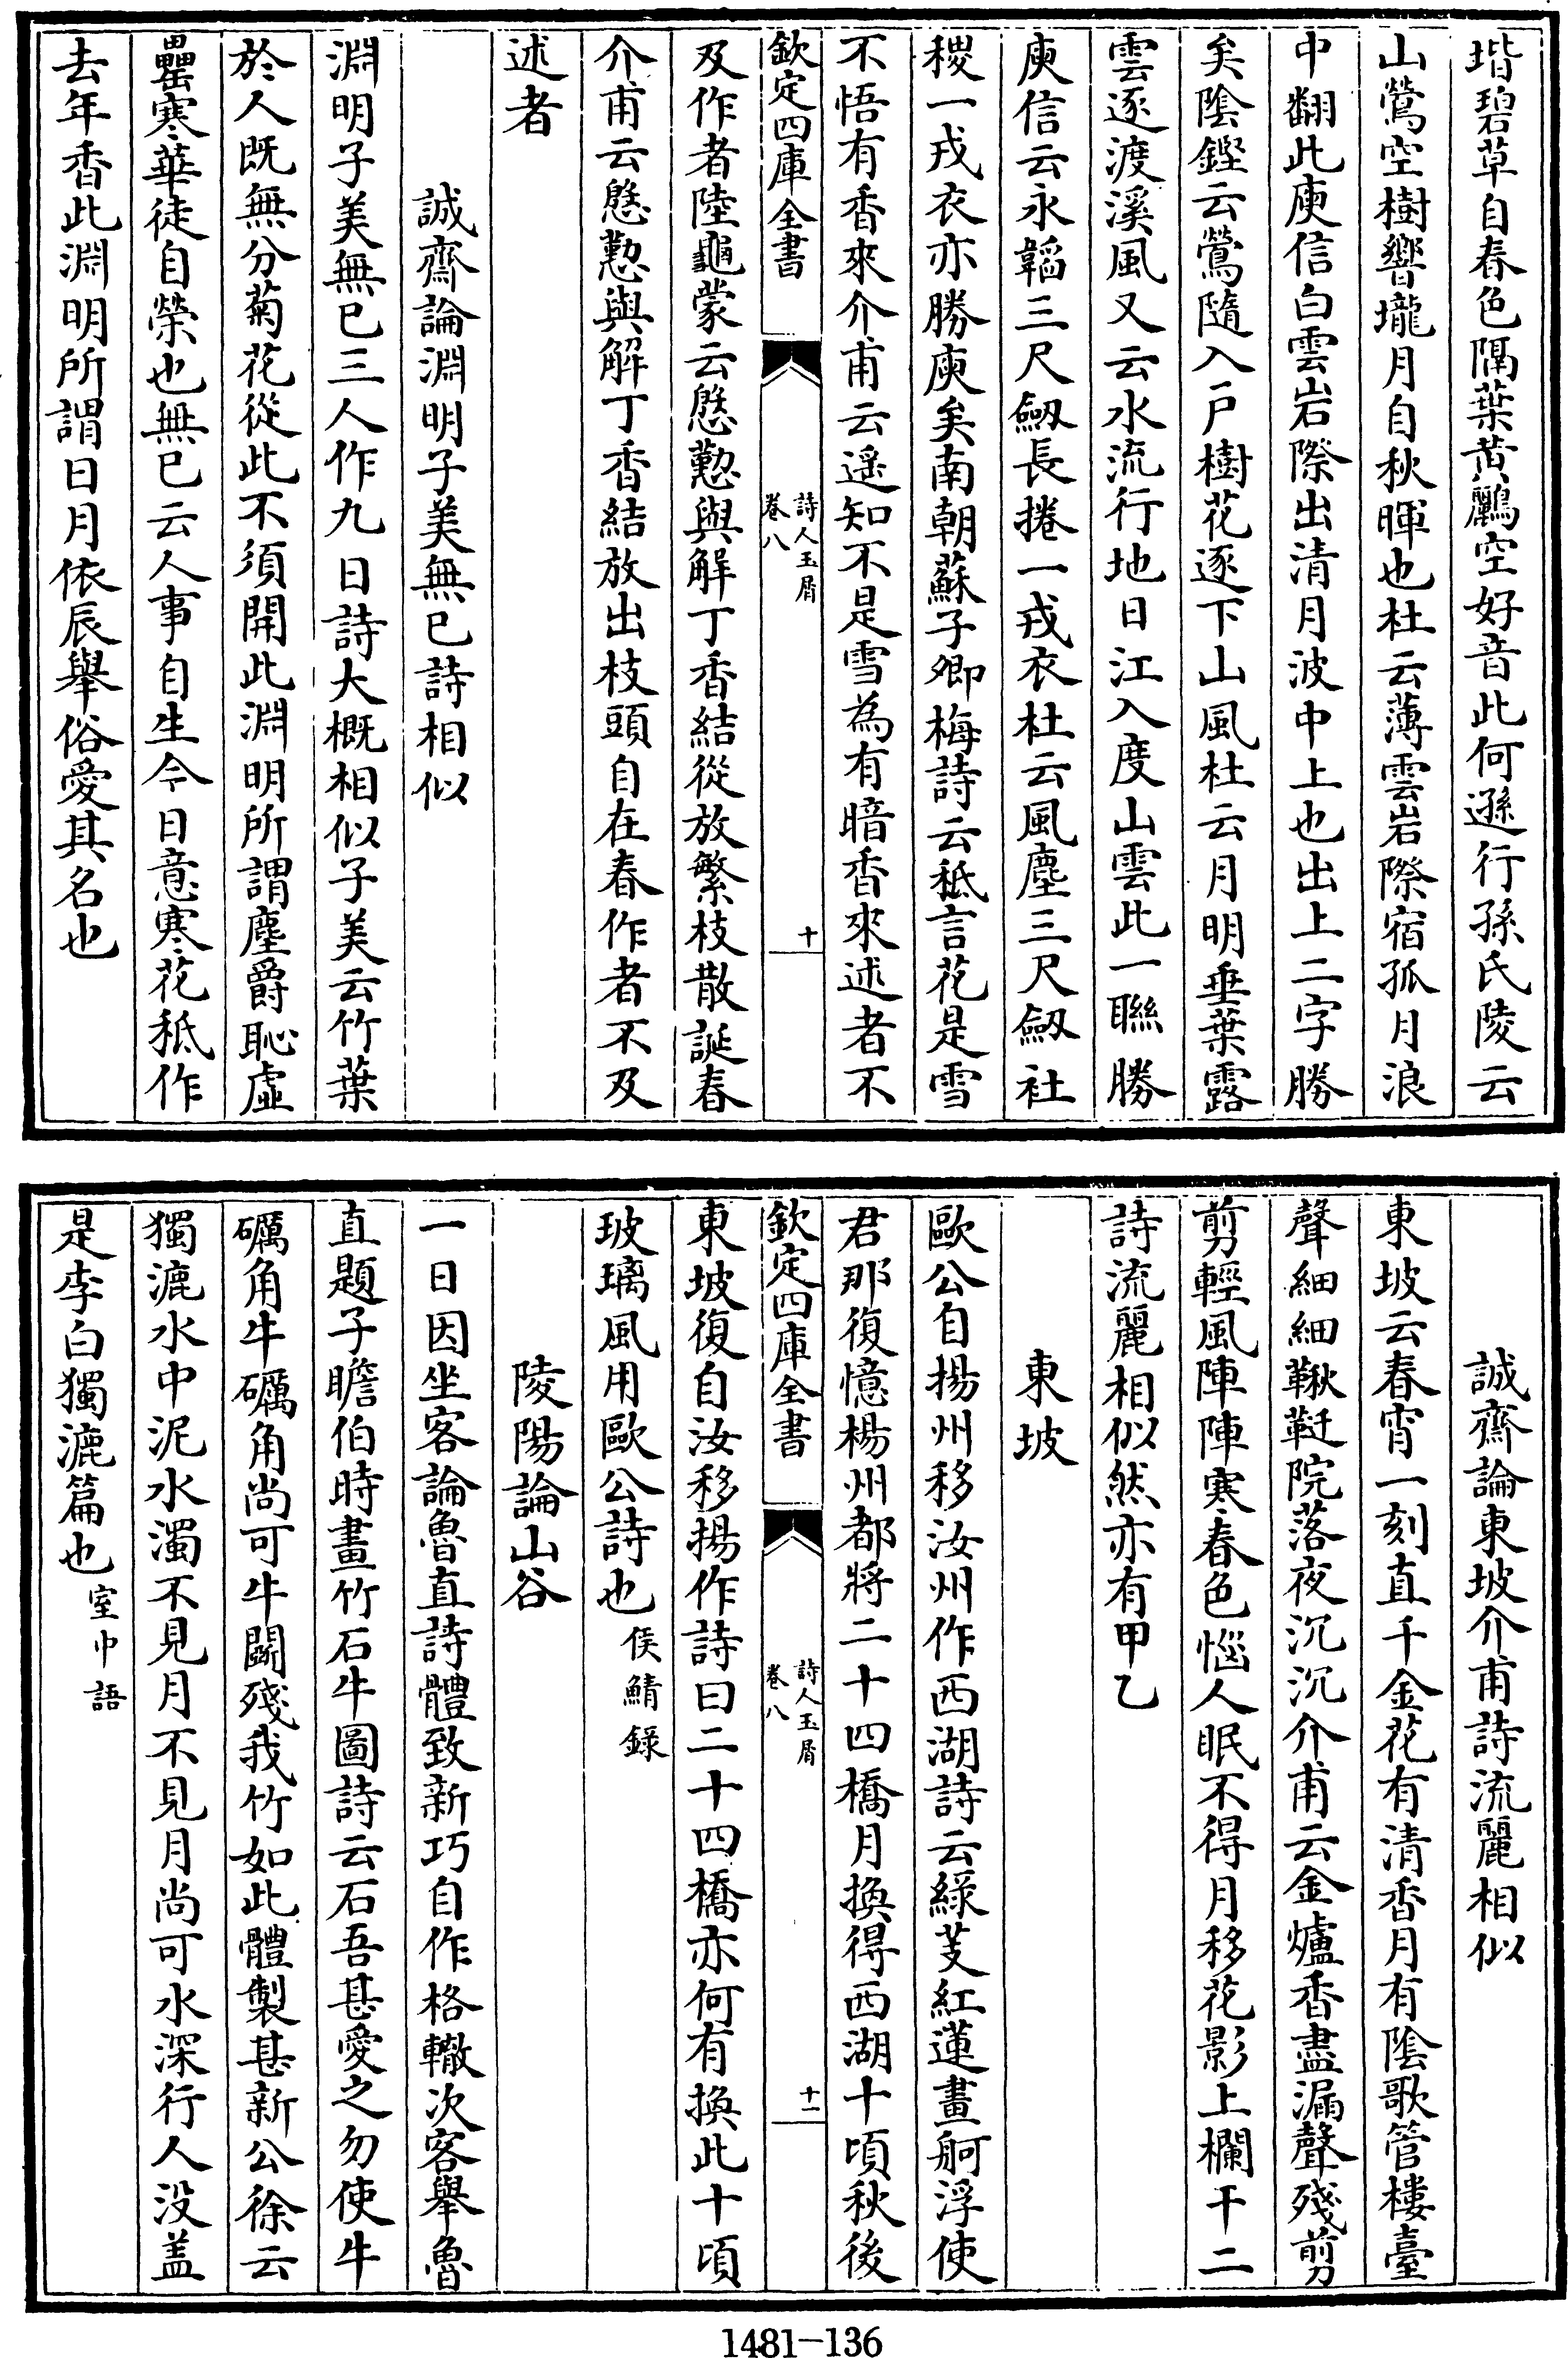 堦碧草自春色隔葉黄鸝空好音此何遜行孫氏陵云
山鶯空樹響壠月自秋暉也杜云薄雲岩際宿孤月浪
中翻此庾信白雲岩際出清月波中上也出上二字勝
矣陰鏗云鶯隨入戸樹花逐下山風杜云月明垂葉露
雲逐渡溪風又云水流行地日江入度山雲此一聯勝
庾信云永韜三尺劔長捲一戎衣杜云風塵三尺劔社
稷一戎衣亦勝庾矣南朝蘇子卿梅詩云秪言花是雪
不悟有香來介甫云遥知不是雪為有暗香來述者不
欽定四庫全書
詩人玉屑
卷八
十
及作者陸龜蒙云慇懃與解丁香結從放繁枝散誕春
介甫云慇懃與解丁香結放出枝頭自在春作者不及
述者
誠齋論淵明子美無已詩相似
淵明子美無已三人作九日詩大概相似子美云竹葉
於人既無分菊花從此不須開此淵明所謂塵爵恥虛
罍寒華徒自榮也無已云人事自生今日意寒花秪作
去年香此淵明所謂日月依辰舉俗愛其名也
誠齋論東坡介甫詩流麗相似
東坡云春宵一刻直千金花有清香月有陰歌管樓臺
聲細細鞦韆院落夜沉沉介甫云金爐香盡漏聲殘剪
剪輕風陣陣寒春色惱人眠不得月移花影上欄干二
詩流麗相似然亦有甲乙
東坡
歐公自揚州移汝州作西湖詩云緑芰紅蓮畫舸浮使
君那復憶楊州都將二十四橋月換得西湖十頃秋後
欽定四庫全書
詩人玉屑
卷八
十一
東坡復自汝移揚作詩曰二十四橋亦何有換此十頃
玻璃風用歐公詩也侯鯖録
陵陽論山谷
一日因坐客論魯直詩體致新巧自作格轍次客舉魯
直題子瞻伯時畫竹石牛圖詩云石吾甚愛之勿使牛
礪角牛礪角尚可牛鬭殘我竹如此體製甚新公徐云
獨漉水中泥水濁不見月不見月尚可水深行人没盖
是李白獨漉篇也室中語
1481-136